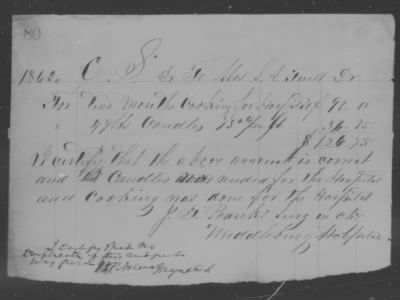 80
1862 C. S. Dr To Mrs S. A. Dr
For Two Months Cooking for Hospital $ 90.
" 49 lbs Candles 75 36.75
$ 126.75
I certify that the above account is correct
and Candles were needed for the Hospital
and cooking was done for the Hospital
J. D. Surg in chg
Middleburg Hospital
I certify that no
duplicate of this